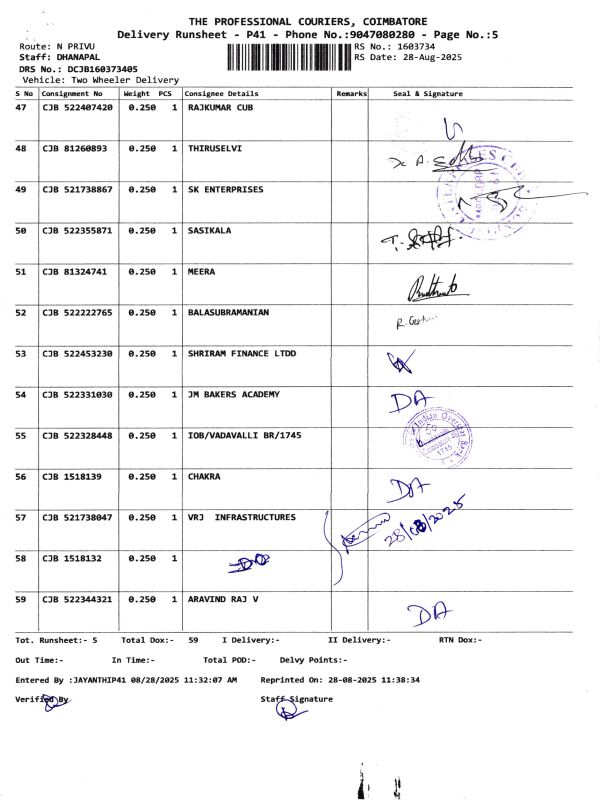 THE PROFESSIONAL COURIERS, COIMBATORE
Delivery Runsheet - P41 - Phone No.:9047080280 - Page No.:5
Route: N PRIVU RS No.: 1603734
Staff: DHANAPAL RS Date: 28-Aug-2025
DRS No.: DCJB160373405
Vehicle: Two Wheeler Delivery
S No Consignment No Weight PCS Consignee Details Remarks Seal & Signature
47 CJB 522407420 0.250 1 RAJKUMAR CUB
48 CJB 81260893 0.250 1 THIRUSELVI
49 CJB 521738867 0.250 1 SK ENTERPRISES
50 CJB 522355871 0.250 1 SASIKALA
51 CJB 81324741 0.250 1 MEERA
52 CJB 522222765 0.250 1 BALASUBRAMANIAN
53 CJB 522453230 0.250 1 SHRIRAM FINANCE LTDD
54 CJB 522331030 0.250 1 JM BAKERS ACADEMY DA
55 CJB 522328448 0.250 1 IOB/VADAVALLI BR/1745
Indian Overseas Bank
1745
56 CJB 1518139 0.250 1 CHAKRA DA
57 CJB 521738047 0.250 1 VRJ INFRASTRUCTURES 28/08/2025
58 CJB 1518132 0.250 1
59 CJB 522344321 0.250 1 ARAVIND RAJ V DA
Tot. Runsheet:- 5 Total Dox:- 59 I Delivery:- II Delivery:- RTN Dox:-
Out Time:- In Time:- Total POD:- Delvy Points:-
Entered By :JAYANTHIP41 08/28/2025 11:32:07 AM Reprinted On: 28-08-2025 11:38:34
Verified By Staff Signature